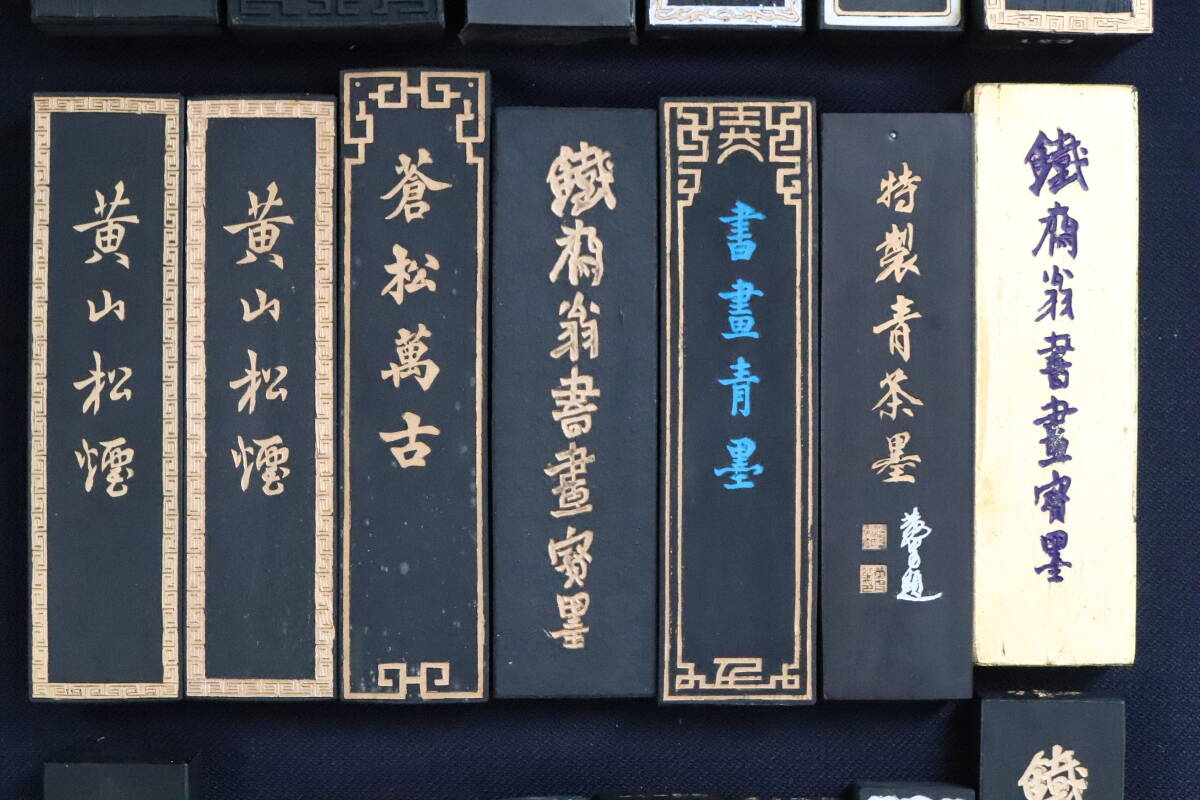 黄山松煙
黄山松煙
蒼松萬古
鐵齋翁書畫寳墨
書畫青墨
特製青茶墨
鐵齋翁書畫寳墨
鐵